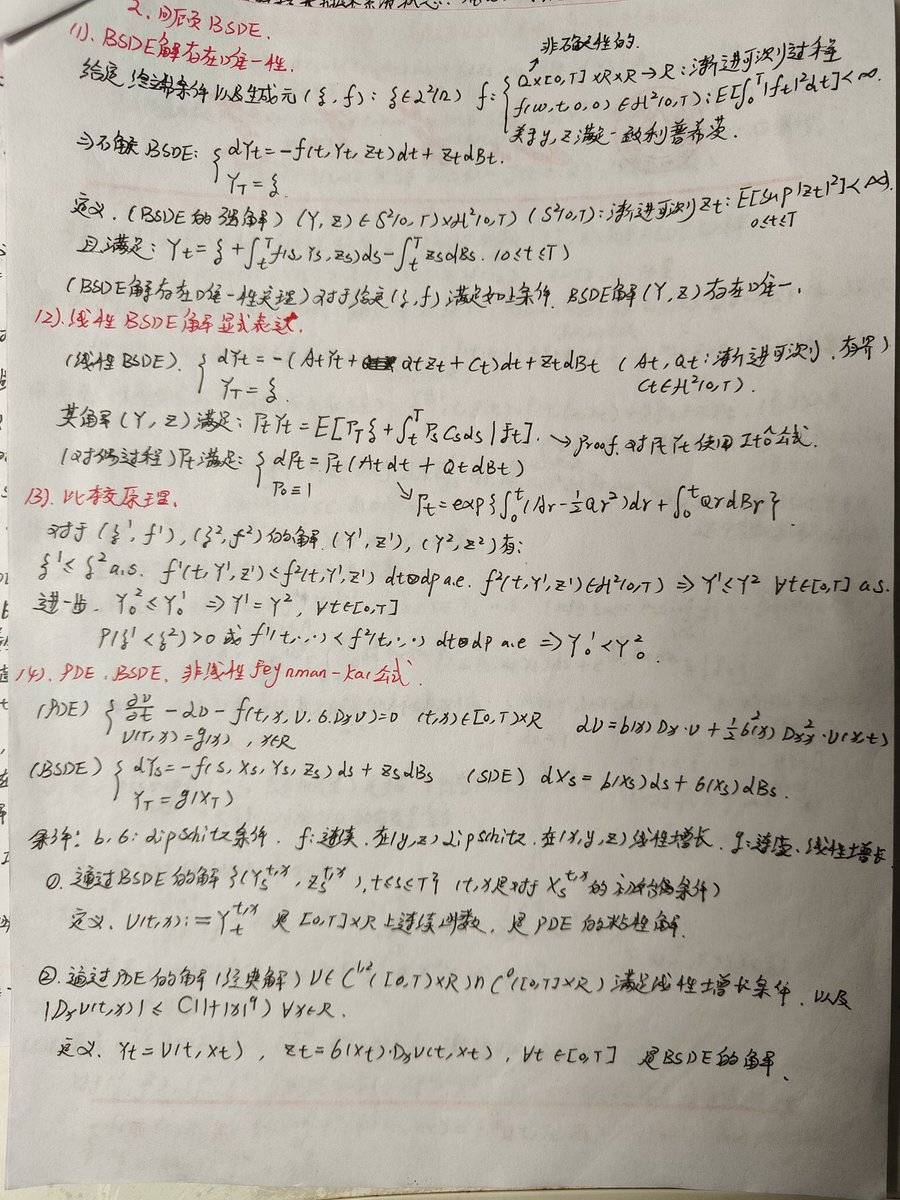 2. 回顾 BSDE.
(1). BSDE解存在唯一性.
非确定性的.
给定 终端条件以及生成元 (ξ, f): ξ∈L²(Ω) f: { Ω×[0,T]×R×R→R: 渐进可测过程
f(w,t,0,0) ∈ H²(0,T): E[∫₀ᵀ|f_t|²dt]<∞.
关于y, z满足一致利普希茨.
⇒ BSDE: { dYt = -f(t,Yt,Zt)dt + ZtdBt.
Y_T = ξ
定义. (BSDE的强解) (Y,Z) ∈ S²(0,T)×H²(0,T) (S²(0,T): 渐进可测Zt: E[sup_{0≤t≤T}|Zt|²]<∞).
且满足: Yt = ξ + ∫_t^T f(s,Ys,Zs)ds - ∫_t^T ZsdBs. (0≤t≤T)
(BSDE解存在唯一性定理) 对于给定(ξ,f) 满足如上条件. BSDE解(Y,Z)存在唯一.
(2). 线性BSDE解显式表达.
(线性BSDE). { dYt = -(AtYt + QtZt + Ct)dt + ZtdBt (At, Qt: 渐进可测, 有界)
Y_T = ξ. Ct∈H²(0,T).
其解(Y,Z)满足: ΓtYt = E[Γ_Tξ + ∫_t^T ΓsCsds | Ft]. ↘ proof. 对ΓtYt使用Itô公式.
(对偶过程) Γt满足: { dΓt = Γt(Atdt + QtdBt)
Γ₀ = 1 ↘ Γt = exp{∫₀^t(Ar - ½Qr²)dr + ∫₀^t QrdBr}.
(3). 比较原理.
对于(ξ¹,f¹), (ξ²,f²)的解. (Y¹,Z¹), (Y²,Z²)有:
ξ¹≤ξ² a.s. f¹(t,Y¹,Z¹)≤f²(t,Y¹,Z¹) dt⊗dp a.e. f²(t,Y¹,Z¹)∈H²(0,T) ⇒ Y¹≤Y² ∀t∈[0,T] a.s.
进一步. Y₀²≤Y₀¹ ⇒ Y¹=Y², ∀t∈[0,T]
P(ξ¹<ξ²)>0 或 f¹(t,·,·)<f²(t,·,·) dt⊗dp a.e ⇒ Y₀¹<Y₀².
(4). PDE. BSDE. 非线性Feynman-Kac公式.
(PDE) { ∂U/∂t - LU - f(t,x,U,б.DxU)=0 (t,x)∈[0,T)×R LU = b(x)Dx·U + ½б²(x)D²xx·U(x,t)
U(T,x)=g(x), x∈R
(BSDE) { dYs = -f(s,Xs,Ys,Zs)ds + ZsdBs (SDE) dXs = b(Xs)ds + б(Xs)dBs.
Y_T = g(X_T)
条件: b, б: Lipschitz条件. f: 连续. 在(y,z) Lipschitz. 在(x,y,z)线性增长. g: 连续、线性增长
①. 通过BSDE的解 {(Ys^{t,x}, Zs^{t,x}), t≤s≤T} (t,x是对于Xs^{t,x}的初始条件)
定义. U(t,x):=Yt^{t,x} 是[0,T]×R上连续函数, 是PDE的粘性解.
②. 通过PDE的解(经典解) U∈C^{1,2}([0,T)×R)∩C⁰([0,T]×R) 满足线性增长条件. 以及
|DxU(t,x)| ≤ C(1+|x|^q) ∀x∈R.
定义. Yt = U(t,Xt), Zt = б(Xt)·DxU(t,Xt), ∀t∈[0,T] 是BSDE的解.